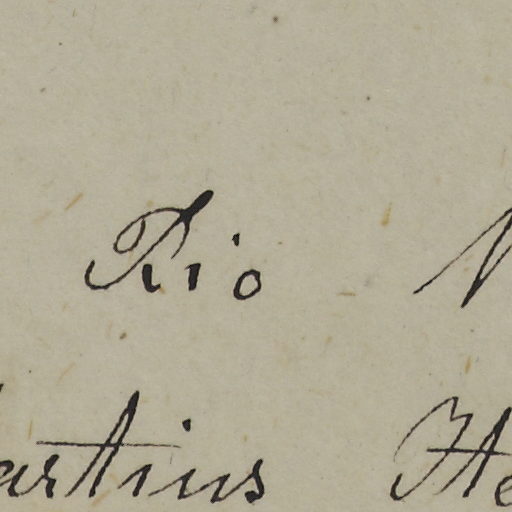 Rio
artius He